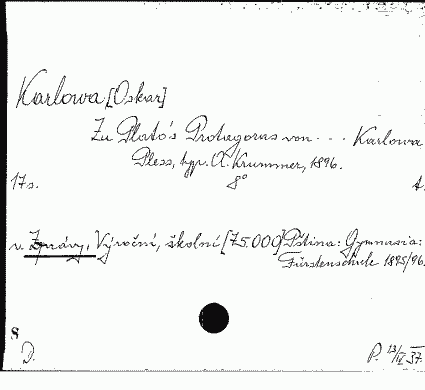 Karlowa [Oskar]
Zu Plato's Protagoras von ... Karlowa
Pless, typ. A. Krummer, 1896.
17 s. 8° t.
v. Zprávy, Výroční, školní [75.000] Pština: Gymnasia:
Fürstenschule 1895/96.
8
D. P. 13/IV 37